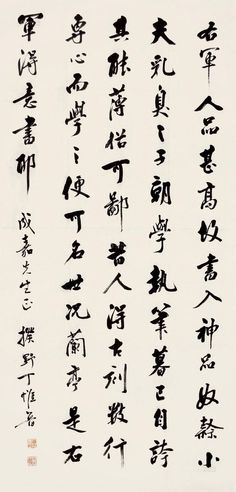 右军人品甚高故书入神品奴隸小
夫乳臭之子朝學執筆暮已自誇
其能薄俗可鄙昔人得古刻數行
專心而學之便可名世况蘭亭是右
軍得意書耶 成嘉先生正 樸野丁惟魯